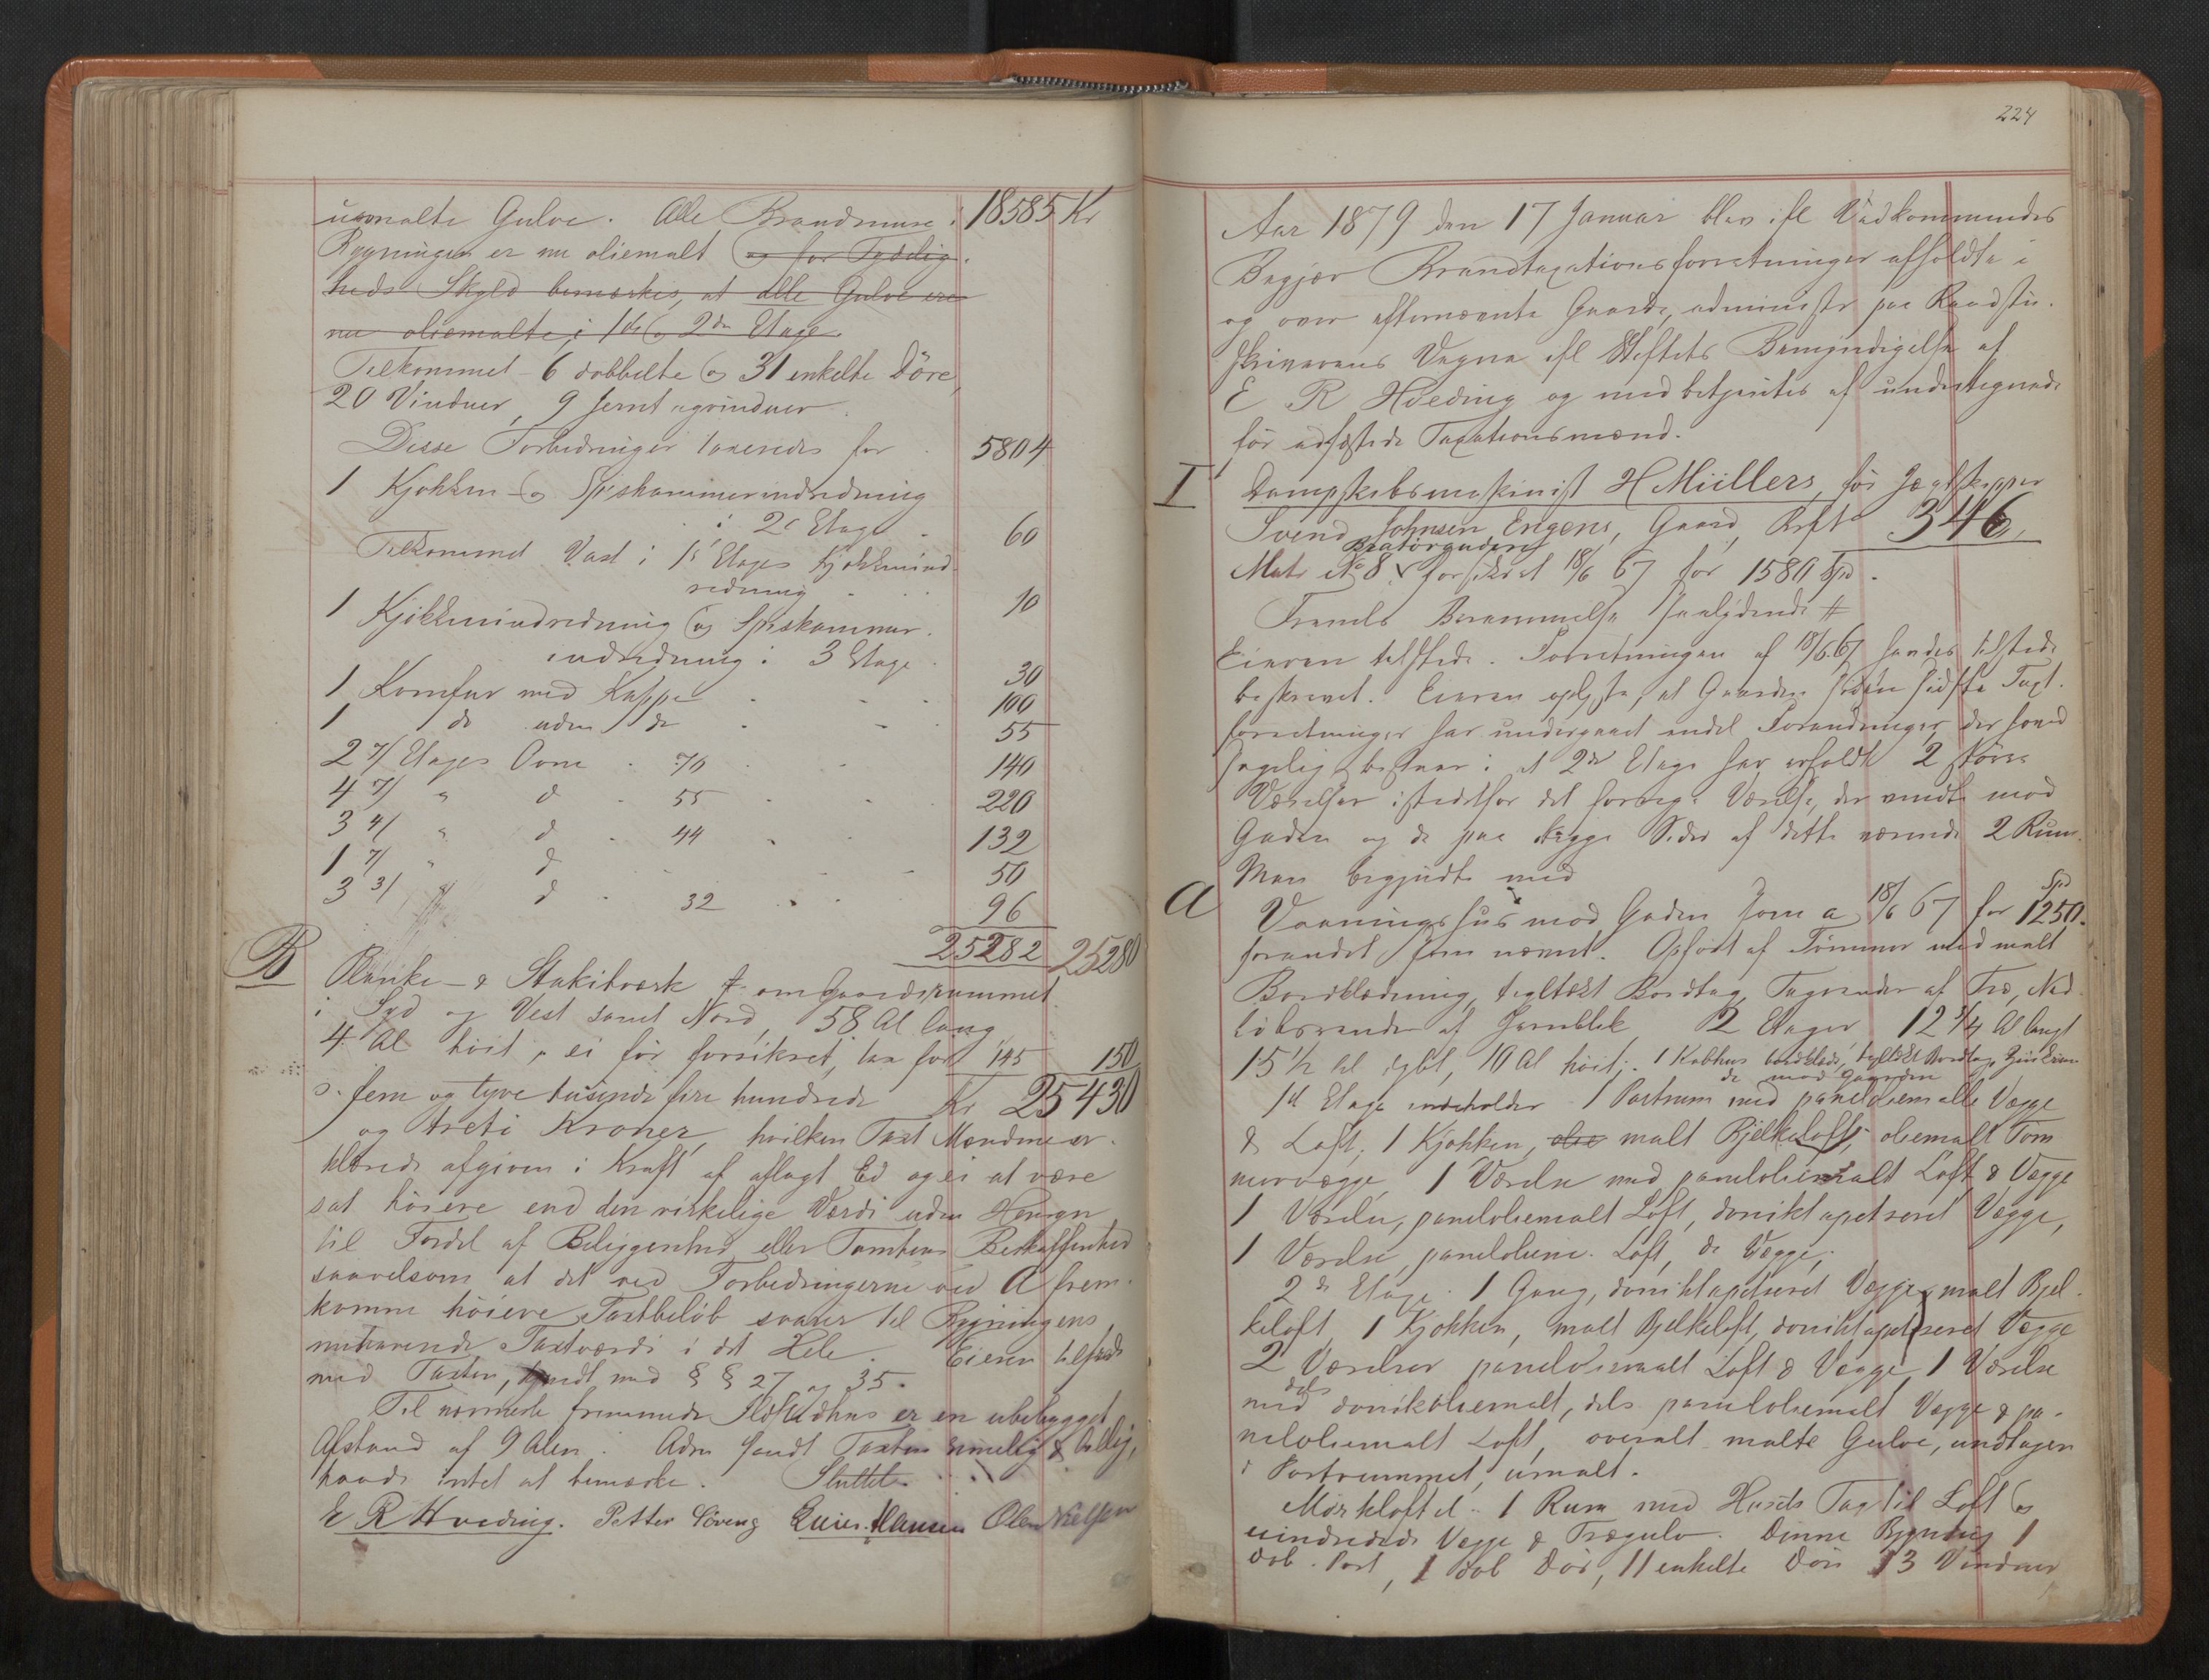 umalte Gulve. Alle Brandmure i 18585 Kr
Bygningen er nu oliemalt og for Tydelig-
heds Skyld bemærkes, at alle Gulve ere
nu oliemalte i 1ste og 2den Etage
Tilkommet 6 dobbelte og 31 enkelte Döre,
20 Vinduer, 9 Jernt agvinduer.
Disse Forbedringer taxeredes for 5804
1 Kjøkken- og Spiskammerindredning
i 2e Etage 60
Tilkommet Vask i 1s Etages Kjøkkenind-
redning 10
1 Kjøkkenindredning og Spiskammer-
indredning i 3 Etage 30
1 Komfur med Kappe 100
1 do uden do 55
2 7/ Etages Ovne 70 140
4 7/ " d 55 220
3 4/ " d 44 132
1 7/ " d 50
3 3/ d 32 96
25282 25280
B Planke- & Stakitværk om Gaardsrummet
i Syd og Vest samt Nord, 58 Al lang
4 Al höit, ei før forsikret, tax for 145 150
fem og tyve tusinde fire hundrede Kr 25430
og treti Kroner, hvilken Taxt Mændene er-
klærede afgiven i Kraft af aflagt Ed og ei at være
sat höiere end den virkelige Værdi uden Hensyn
til Fordel af Beliggenhed eller Tomtens Beskaffenhed
saavelsom at det ved Forbedringerne ved A frem-
komne höiere Taxtbeløb svarer til Bygningens
nuhavende Taxtværdi i det Hele. Eieren tilfreds
med Taxten, kjendt med § § 27 og 35.
Til nærmeste fremmede Ildstedhus er en ubebygget
Afstand af 9 Alen. Adm fandt Taxten rimelig & billig,
havde intet at bemærke. Sluttet
E R Hveding. Petter Coveng Hansen Olen Nielsen
224
Aar 1879 den 17 Januar blev ifl Vedkommendes
Begjær Brandtaxationsforretninger afholdte i
og over efternævnte Gaarde, administr paa Raadstu-
skriverens Vegne ifl Stiftets Bemyndigelse af
E R Hveding og med betjentes af undertegnede
før edfæstede Taxationsmænd.
I Dampskibsmaskinist H Müllers, før Jægtskipper
Svend Johnsen Engens, Gaard, Brft 346,
Bratørgaden
Matr No 8 forsikret 18/6 67 for 1580 Spd.
Fremls Berammelse saalydende #
Eieren tilstede. Forretningen af 18/6 67 fandes tilstede
beskrevet. Eieren oplyste, at Gaarden siden sidste Taxt-
forretninger har undergaaet endel Forandringer, der hoved-
sagelig bestaar i at 2den Etage har erholdt 2 større
Værelser istedetfor det forrige Værelse, der vendte mod
Gaden og de paa begge Sider af dette værende 2 Rum.
Man begyndte med
A Vaaningshus mod Gaden som a 18/6 67 for Spd 1250.
forandret som nævnt. Opført af Tømmer med malt
Bordklædning, tegltækt Bordtag, Tagrender af Træ, Ned-
løbsrender af Jernblik 2 Etager 12 3/4 Al langt
15 1/2 Al dybt, 10 Al höit; 1 Kobhus bordklædt, tegltækt Bordtag, Zinkren-
de mod Gaarden
1st Etage indeholder 1 Portrum med paneloliemalte Vægge
& Loft, 1 Kjøkken, malt Bjelkeloft, oliemalt Tøm-
mervægge 1 Værelse med paneloliemalt Loft & Vægge
1 Værelse, paneloliemalt Loft, doniktapetseret Vægge,
1 Værelse paneloliem. Loft, do Vægge;
2de Etage. 1 Gang, doniktapetseret Vægge, malt Bjel-
keloft, 1 Kjøkken, malt Bjelkeloft, doniktapetseret Vægge
2 Værelser paneloliemalt Loft & Vægge, 1 Værelse
med dels donikoliemalt, dels paneloliemalt Vægge & pa-
neloliemalt Loft, overalt malte Gulve, undtagen
i Portrummet, umalt.
Mørkloftet. 1 Rum med Husets Tag til Loft og
uindredede Vægge & Trægulv. Denne Bygning 1
dob. Port, 1 dob Dör, 11 enkelte Döre 13 Vinduer